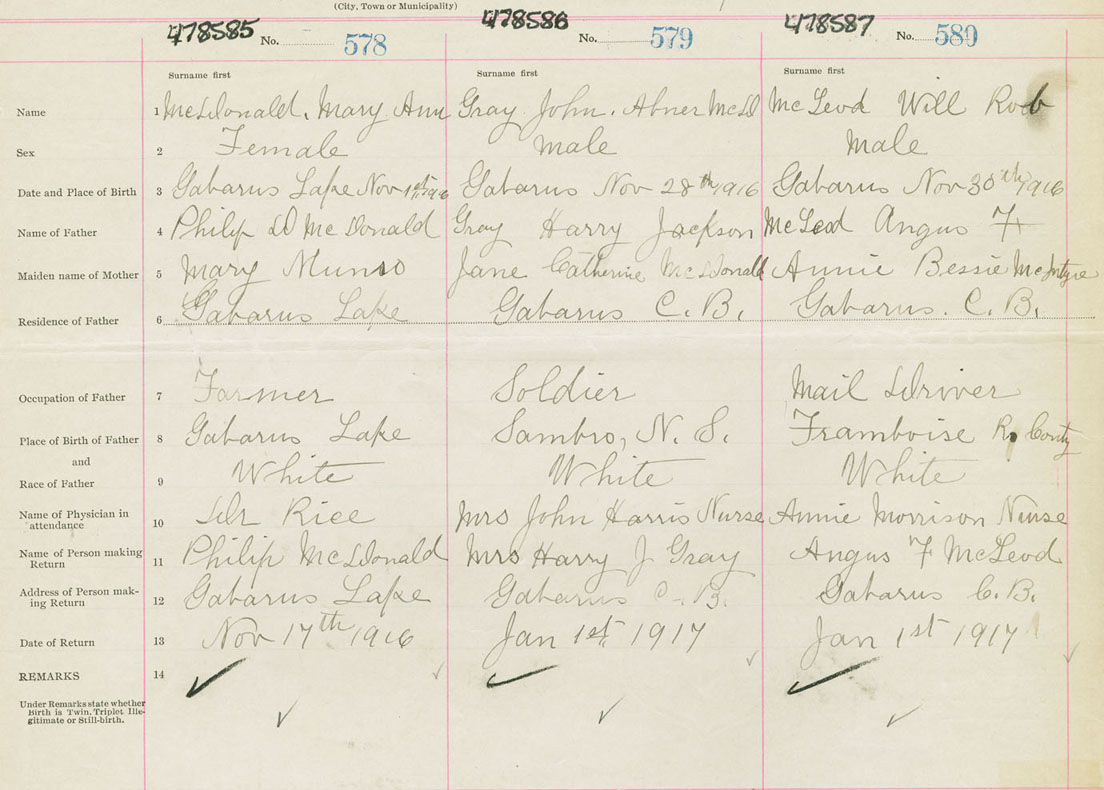 (City, Town or Municipality)
478585 478586 478587
No. 578 No. 579 No. 580
Surname first Surname first Surname first
Name 1 McDonald, Mary Ann Gray John. Abner McD McLeod Will Rob
Sex 2 Female male male
Date and Place of Birth 3 Gabarus Lake Nov 1st Gabarus Nov 28th 1916 Gabarus Nov 30th 1916
Name of Father 4 Philip D McDonald Gray Harry Jackson McLeod Angus F
Maiden name of Mother 5 Mary Munro Jane Catherine McDonald Annie Bessie McIntyre
Residence of Father 6 Gabarus Lake Gabarus C. B. Gabarus. C. B.
Occupation of Father 7 Farmer Soldier Mail Driver
Place of Birth of Father 8 Gabarus Lake Sambro, N. S. Framboise R. Conty
and
Race of Father 9 White White White
Name of Physician in attendance 10 Dr Rice Mrs John Harris Nurse Annie Morrison Nurse
Name of Person making Return 11 Philip McDonald Mrs Harry J Gray Angus F McLeod
Address of Person mak-ing Return 12 Gabarus Lake Gabarus C. B. Gabarus C. B.
Date of Return 13 Nov 17th 1916 Jan 1st 1917 Jan 1st 1917
REMARKS 14
Under Remarks state whether
Birth is Twin. Triplet Ille-
gitimate or Still-birth.